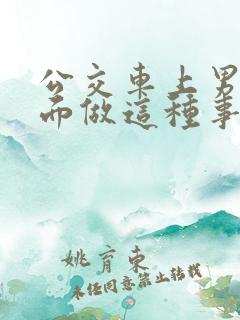 公交車上男
而做這種事
姚育東
未經同意禁止轉載